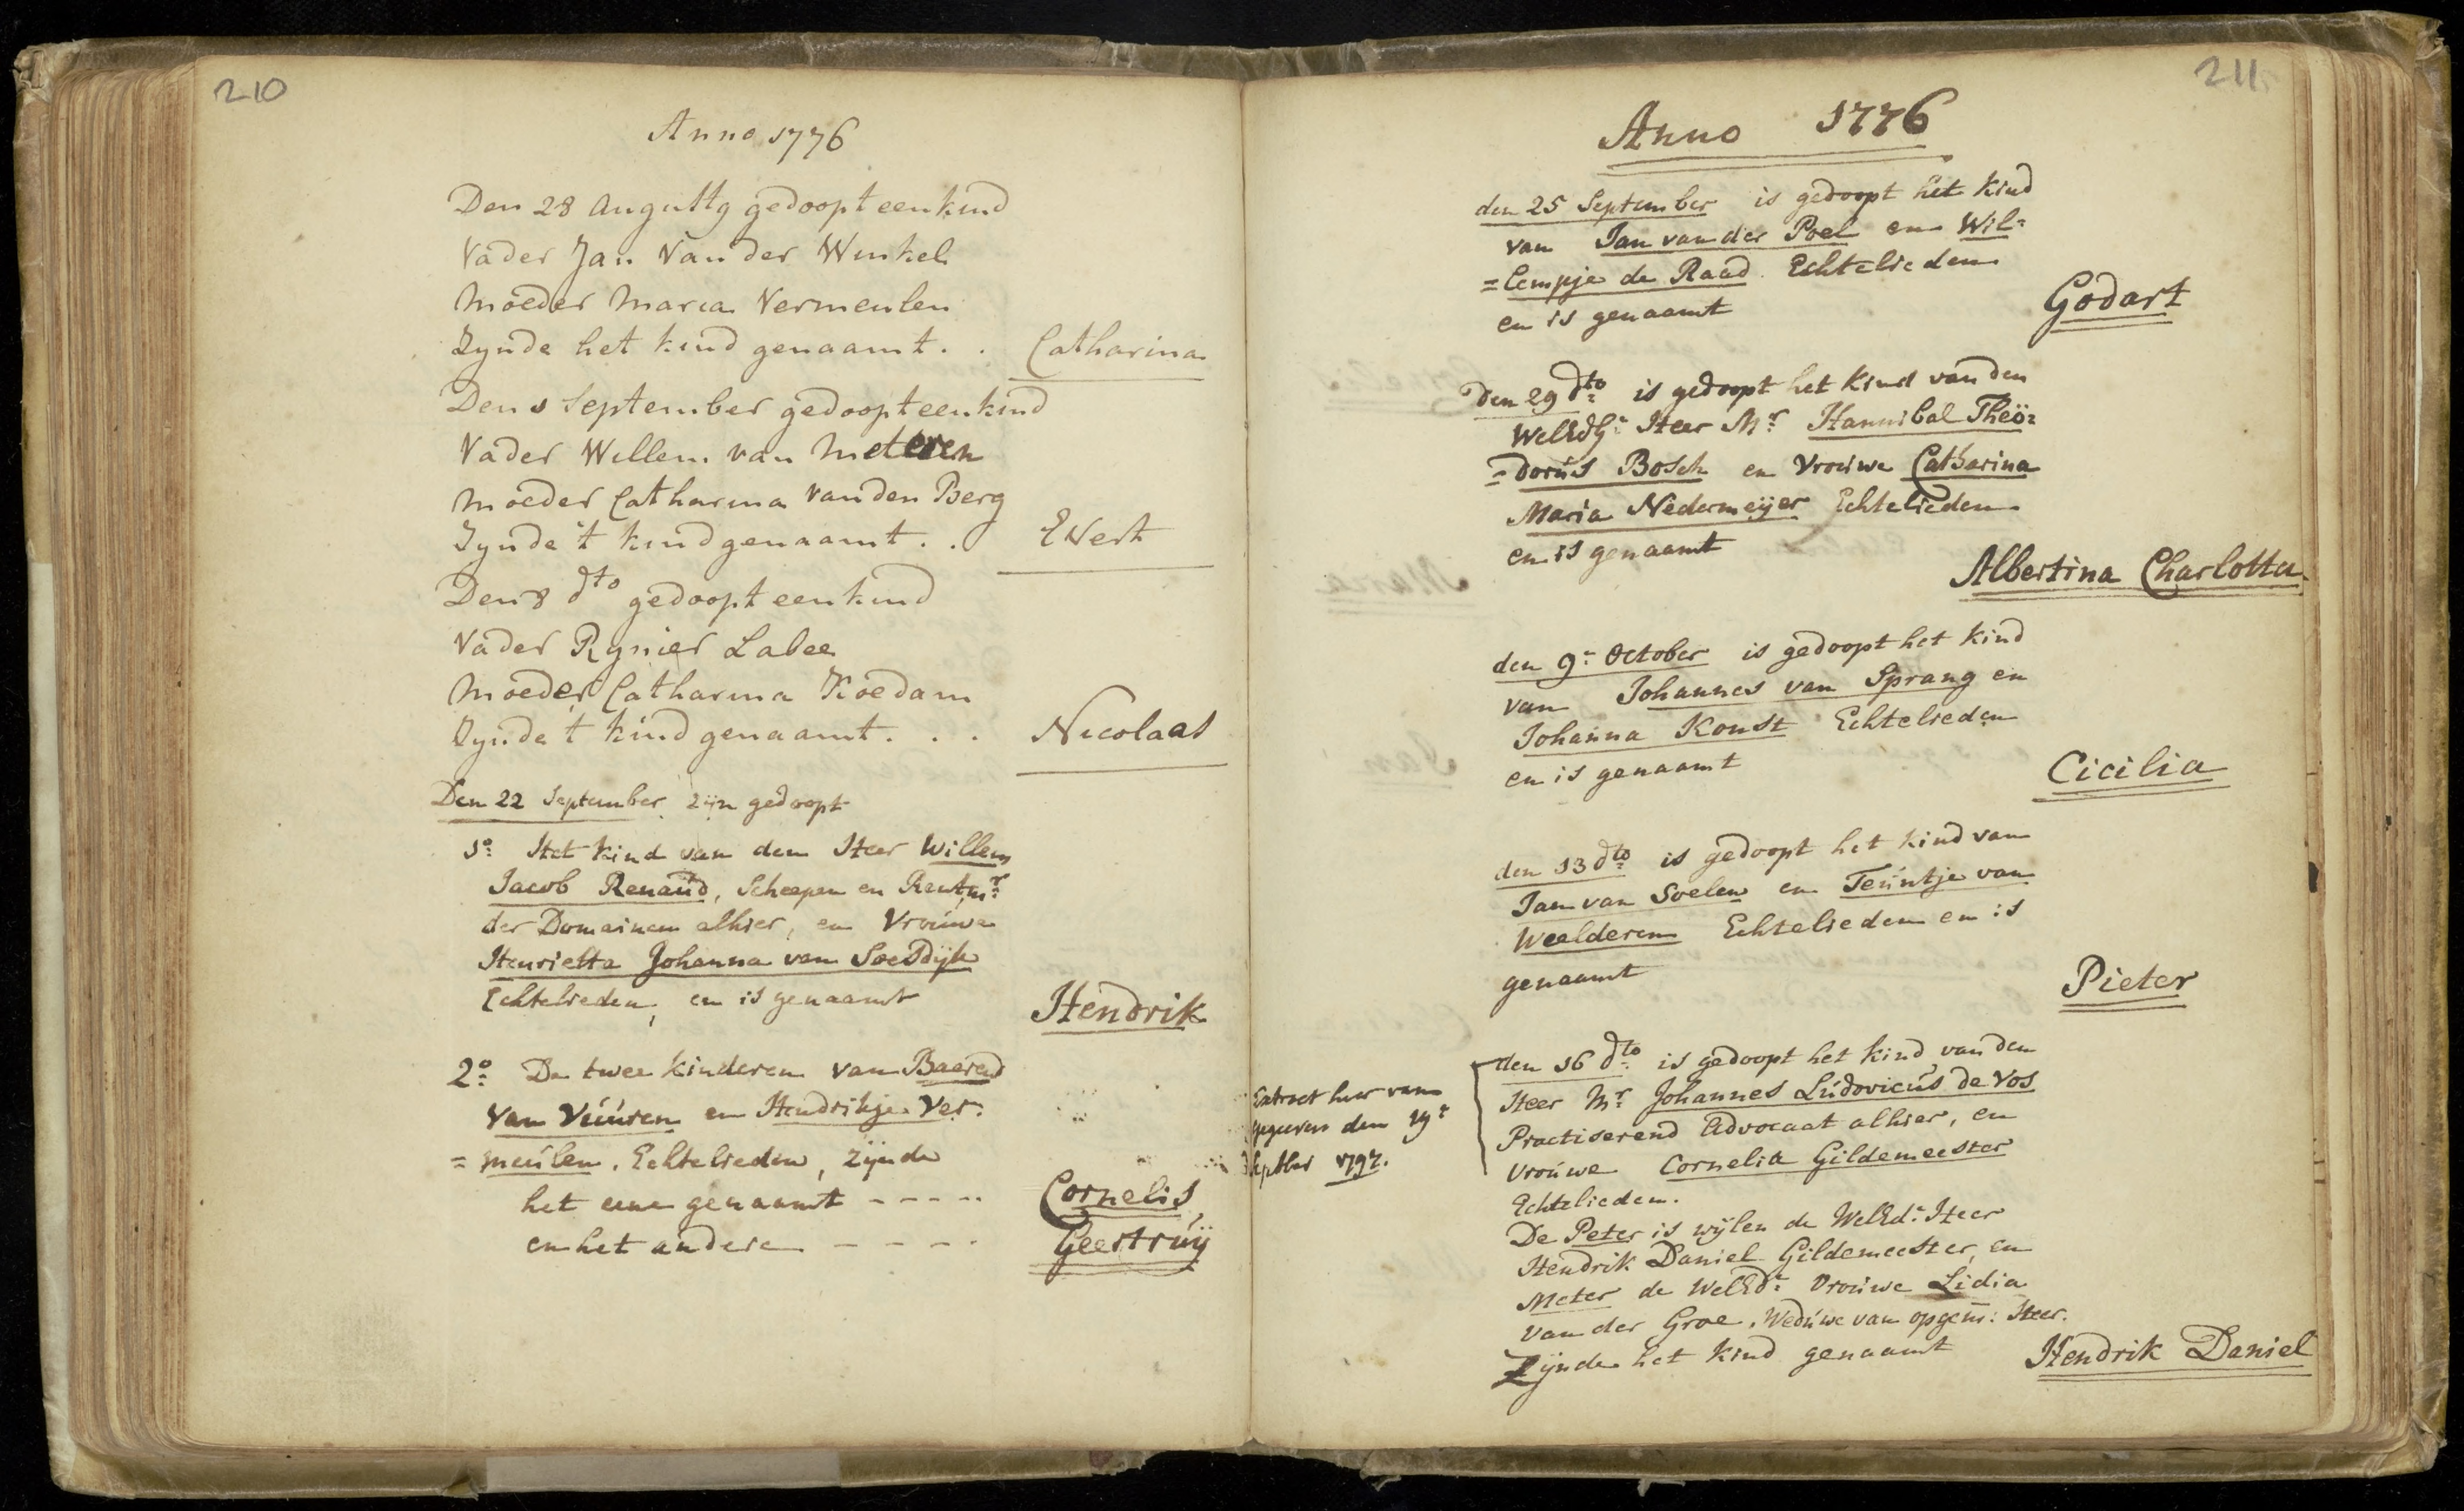 210
Anno 1776
Den 28 Augustg gedoopt een kind
Vader Jan Van der Winkel
Moeder Maria Vermeulen
Zynde het kind genaamt . . Catharina
Den 1 September gedoopt een kind
Vader Willem van Meteren
Moeder Catharina Van den Berg
Zynde 't kind genaamt . . Evert
Den 8 dto gedoopt een kind
Vader Rynier Labee
Moeder Catharina Koedam
Zynde 't kind genaamt . . . Nicolaas
Den 22 September zijn gedoopt
1o: Het kind van den Heer Willem
Jacob Renaud, Scheepen en Rentmr:
der Domainen alhier, en Vrouwe
Henrietta Johanna van Soesdijk
Echtelieden, en is genaamt Hendrik
2o: De twee kinderen van Baarend
Van Vuuren en Hendrikje Ver:
=meulen, Echtelieden, zijnde
het eene genaamt - - - - - Cornelis
en het andere - - - - Geertruij
211
Anno 1776
den 25 September is gedoopt het kind
van Jan van der Poel en Wil=
=lempje de Raad Echtelieden
en is genaamt Godart
Den 29 dto: is gedoopt het kind van den
WelEdG: Heer Mr: Hannibal Theo=
=dorus Bosch en Vrouwe Catharina
Maria Nedermeijer Echtelieden
en is genaamt Albertina Charlotta
den 9: October is gedoopt het kind
van Johannes van Sprang en
Johanna Konst Echtelieden
en is genaamt Cicilia
den 13 dto: is gedoopt het kind van
Jan van Soelen en Teuntje van
Weelderen Echtelieden en is
genaamt Pieter
Extract hier van
gegeven den 19:
Septber 1797.
den 16 dto: is gedoopt het kind van den
Heer Mr: Johannes Ludovicus de Vos
Practiserend Advocaat alhier, en
Vrouwe Cornelia Gildemeester
Echtelieden.
De Peter is wijlen de WelEd: Heer
Hendrik Daniel Gildemeester, en
Meter de WelEd: Vrouwe Lidia
van der Groe, Weduwe van opgem: Heer.
Zijnde het kind genaamt Hendrik Daniel